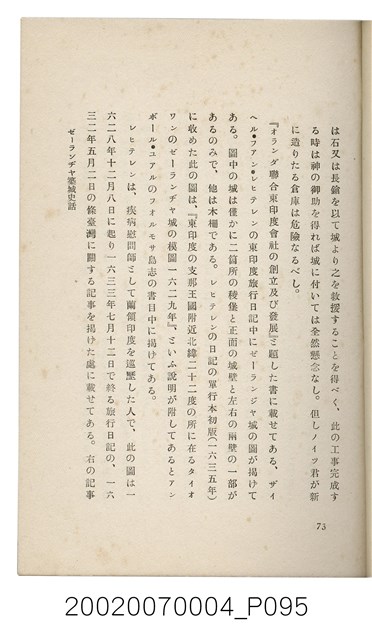 は石又は長鎗を以て城より之を救援することを得べく、此の工事完成す
る時は神の御助を得れば城に付いては全然懸念なし。但しノイツ君が新
に造りたる倉庫は危險なるべし。
『オランダ聯合東印度會社の創立及び發展』と題した書に載せてある、ザイ
ヘル・フアン・レヒテレンの東印度旅行日記中にゼーランジヤ城の圖が掲げて
ある。圖中の城は僅かに二箇所の稜堡と正面の城壁と左右の兩壁の一部が
あるのみで、他は木柵である。レヒテレンの日記の單行本初版(一六三五年)
に收めた此の圖は、『東印度の支那王國附近北緯二十二度の所に在るタイオ
ワンのゼーランヂヤ城の模圖一六二九年』、といふ說明が附してあるとアン
ポール・ユアルのフオルモサ島志の書目中に掲げてある。
レヒテレンは、疾病慰問師として蘭領印度を巡歷した人で、此の圖は一
六二八年十二月八日に起り一六三三年七月十二日で終る旅行日記の、一六
三二年五月二日の條臺灣に關する記事を掲げた處に載せてある。右の記事
ゼーランヂヤ築城史話
73
20020070004_P095